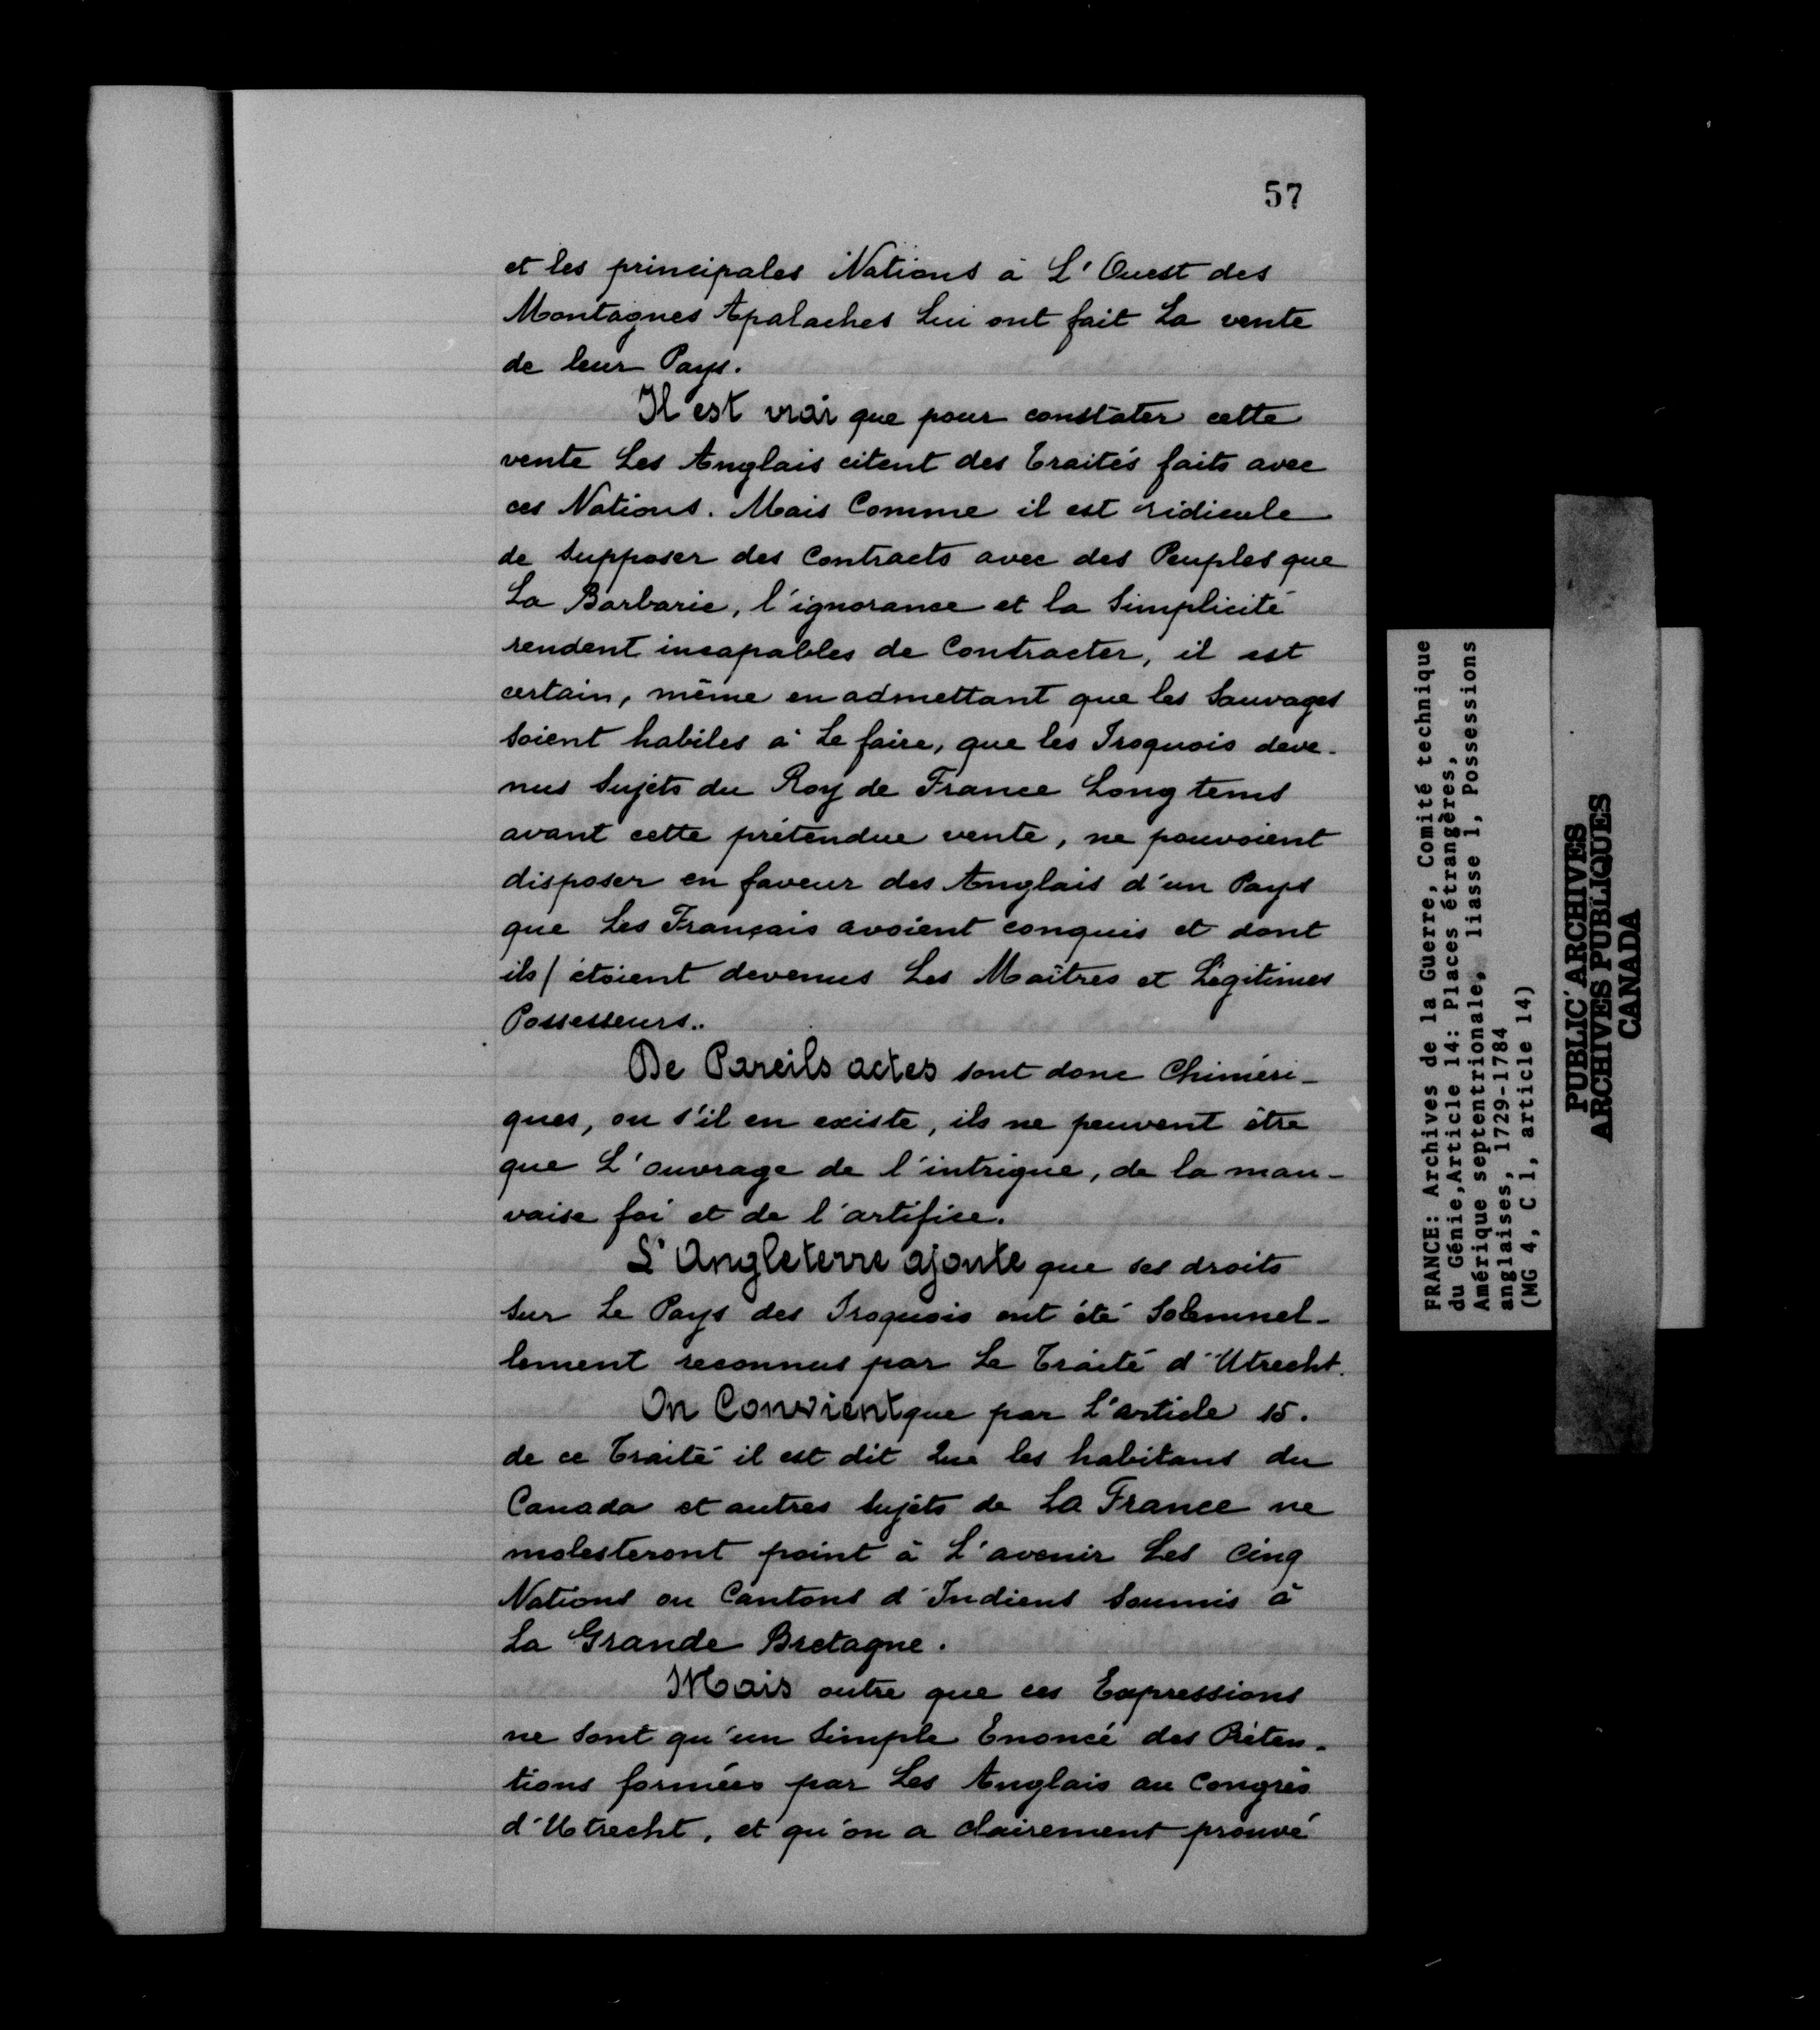 57
et les principales Nations à L'Ouest des
Montagnes Apalaches Lui ont fait La vente
de leur Pays.
Il est vrai que pour constater cette
vente Les Anglais citent des Traités faits avec
ces Nations. Mais Comme il est ridicule
de Supposer des Contracts avec des Peuples que
La Barbarie, l'ignorance et la Simplicité
rendent incapables de Contracter, il est
certain, même en admettant que les Sauvages
Soient habiles à Le faire, que les Iroquois deve-
nus Sujets du Roy de France Long tems
avant cette prétendue vente, ne pouvoient
disposer en faveur des Anglais d'un Pays
que Les Français avoient conquis et dont
ils/ étoient devenus Les Maîtres et Légitimes
Possesseurs..
De Pareils actes sont donc Chiméri-
ques, ou s'il en existe, ils ne peuvent être
que L'ouvrage de l'intrigue, de la mau-
vaise foi et de l'artifice.
L'Angleterre ajoute que ses droits
Sur Le Pays des Iroquois ont été Solemnel-
lement reconnus par Le Traité d'Utrecht.
On Convient que par L'article 15.
de ce Traité il est dit Que les habitans du
Canada et autres Sujets de La France ne
molesteront point à L'avenir Les Cinq
Nations ou Cantons d'Indiens Soumis à
La Grande Bretagne.
Mais outre que ces Expressions
ne Sont qu'un Simple Enoncé des Préten-
tions formées par Les Anglais au Congrès
d'Utrecht, et qu'on a clairement prouvé
FRANCE: Archives de la Guerre, Comité technique
du Génie,Article 14: Places étrangères,
Amérique septentrionale, liasse 1, Possessions
anglaises, 1729-1784
(MG 4, C 1, article 14)
PUBLIC ARCHIVES
ARCHIVES PUBLIQUES
CANADA